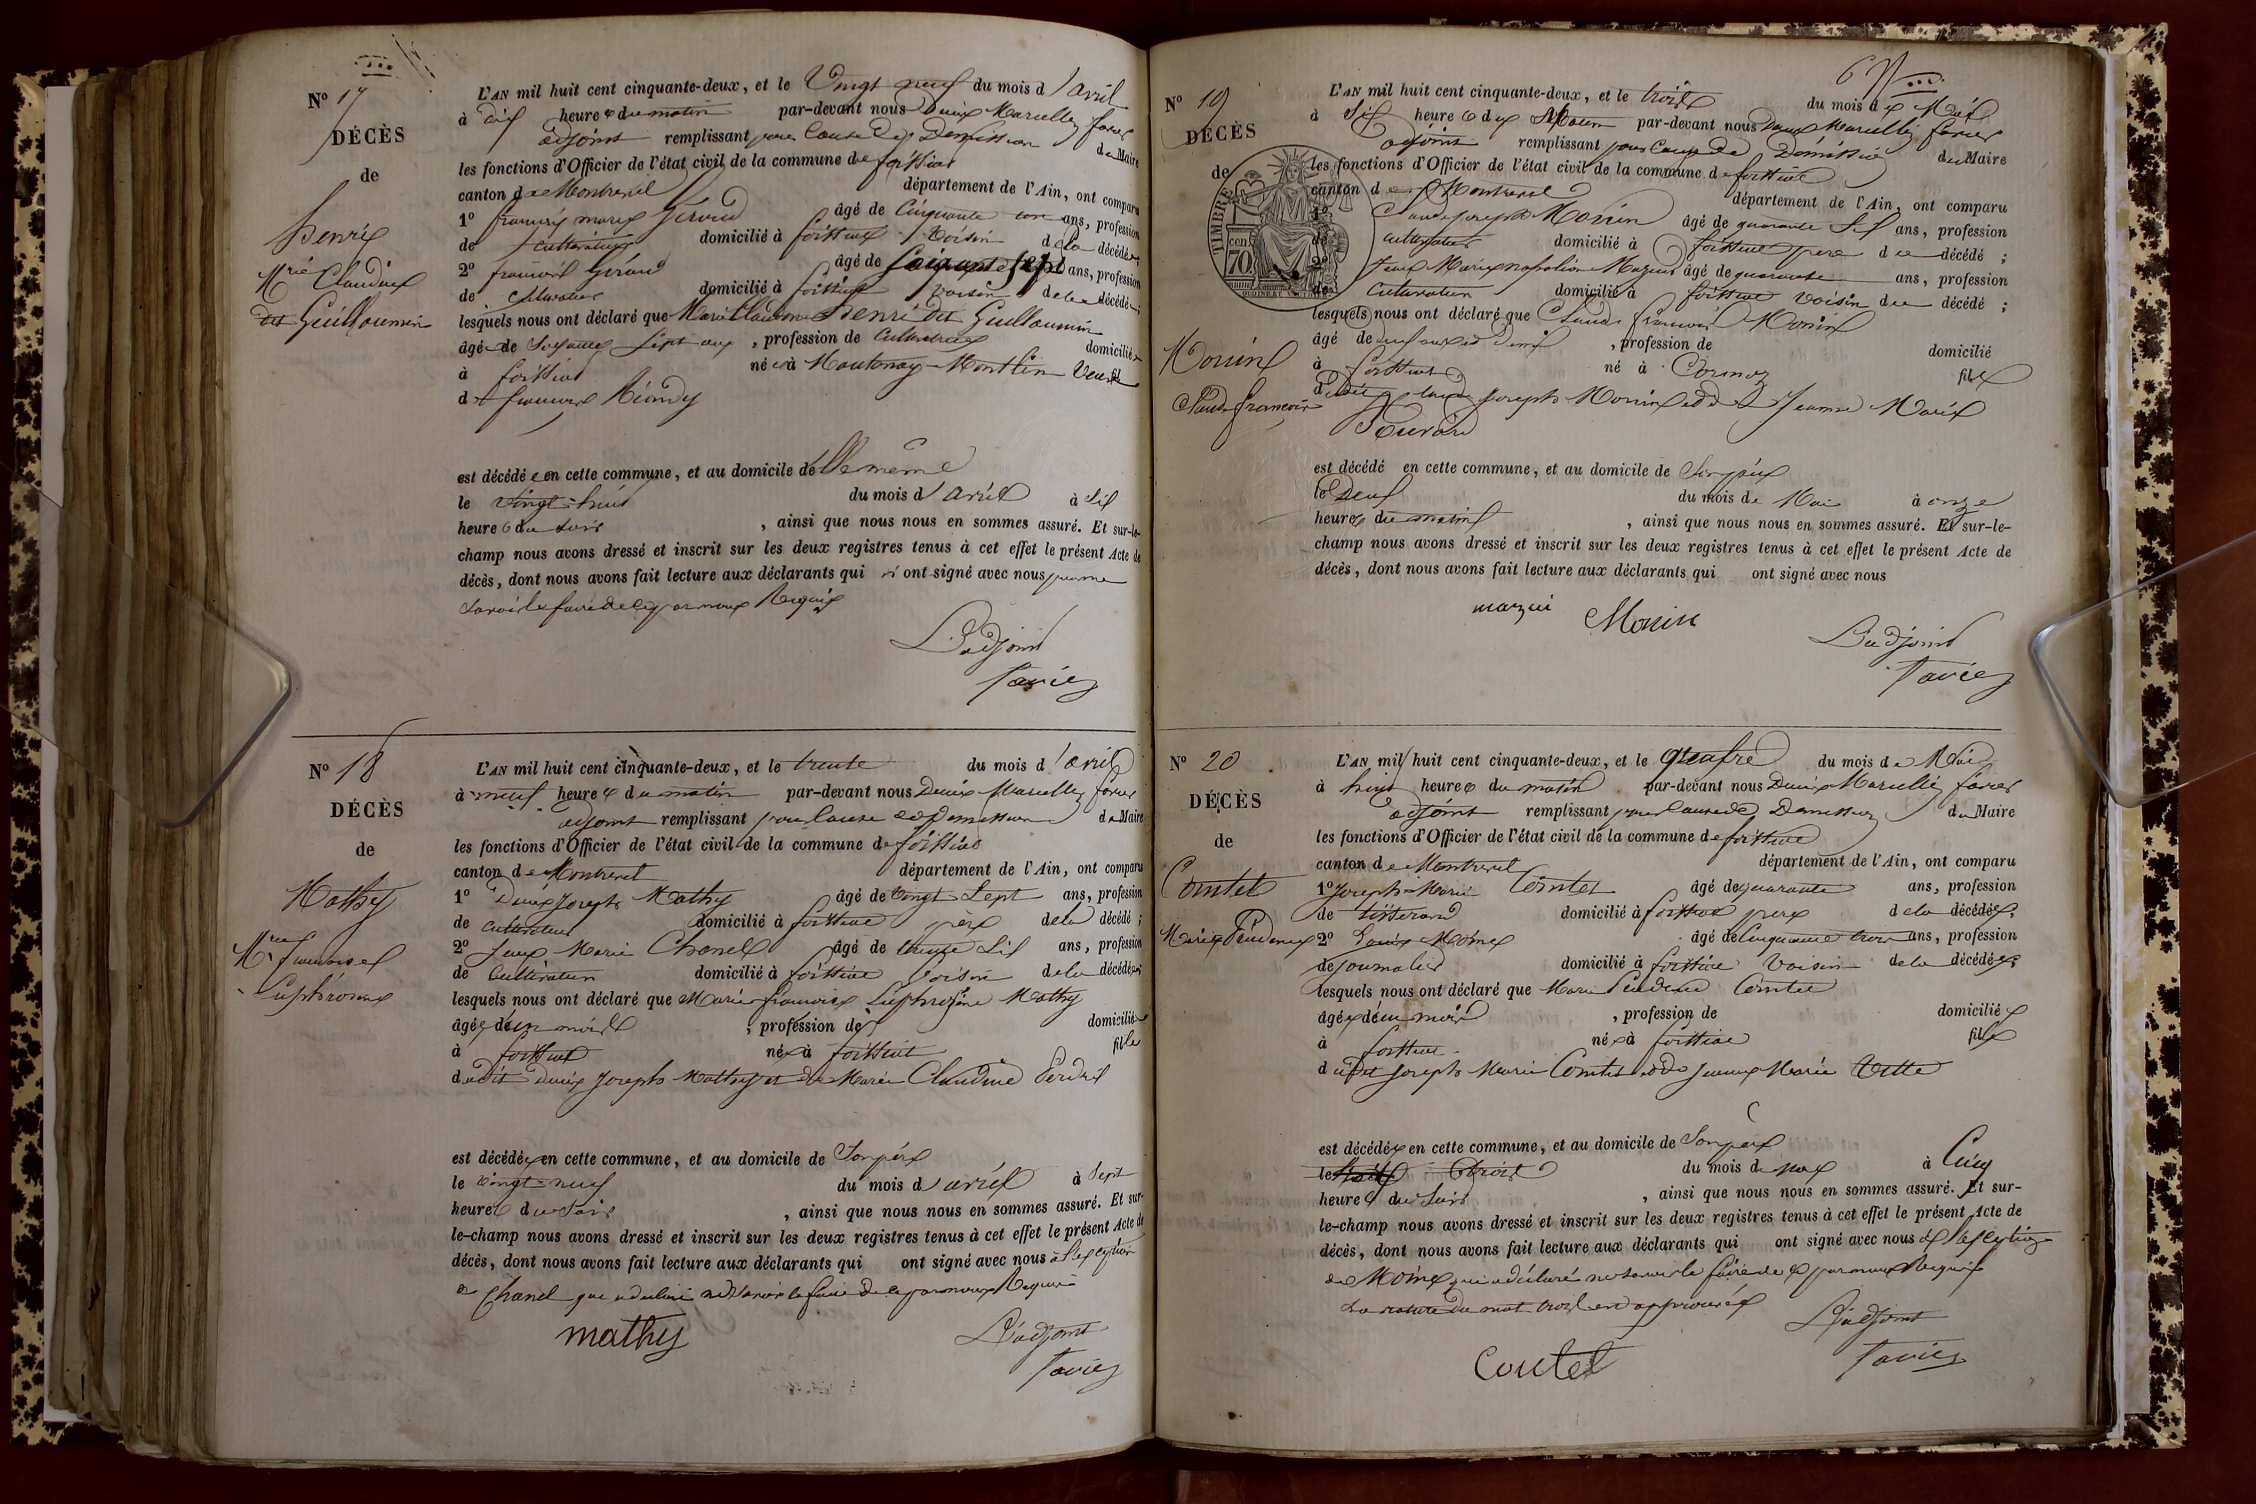 N° 17
DÉCÈS
de
henrie
Mrie Claudine
dit Guillaumin
L'AN mil huit cent cinquante-deux, et le Vingt neuf du mois d'avril
à dix heure du matin par-devant nous Denis Marcelly favier
adjoint remplissant pour Cause de Demission du Maire
les fonctions d'Officier de l'état civil de la commune de foissiat
canton de Montrevel département de l'Ain, ont comparu
1° françois marie Giraud âgé de Cinquante un ans, profession
de cultivateur domicilié à foissiat Voisin de la décédée;
2° françois Giraud âgé de Soixante sept ans, profession
de cultivateur domicilié à foissiat voisin de la décédée;
lesquels nous ont déclaré que Marie Claudine Henri dit Guillaumin
âgée de Soixante Sept ans, profession de Cultivatrice domiciliée
à foissiat née à Mantenay-Montlin Veuve
de françois
est décédée en cette commune, et au domicile de Elle même
le vingt-huit du mois d'avril à Six
heure du soir, ainsi que nous nous en sommes assuré. Et sur-le-
champ nous avons dressé et inscrit sur les deux registres tenus à cet effet le présent Acte de
décès, dont nous avons fait lecture aux déclarants qui n'ont signé avec nous pour ne
savoir le faire de ce par nous Requis
L'adjoint
favier
N° 18
DÉCÈS
de
Mathy
Mrie francoise
Euphrosine
L'AN mil huit cent cinquante-deux, et le trente du mois d'avril
à neuf heure du matin par-devant nous Denis Marcelly favier
adjoint remplissant pour Cause de Demission du Maire
les fonctions d'Officier de l'état civil de la commune de foissiat
canton de Montrevel département de l'Ain, ont comparu
1° Denis Joseph Mathy âgé de Vingt Sept ans, profession
de cultivateur domicilié à foissiat père de la décédé;
2° Jean Marie Chanel âgé de trente Six ans, profession
de Cultivateur domicilié à foissiat Voisin de la décédée;
lesquels nous ont déclaré que Marie françoise Euphrosine Mathy
âgée de un mois, profession de domiciliée
à foissiat née à foissiat fille
dudit Denis Joseph Mathy et de Marie Claudine Perdrix
est décédée en cette commune, et au domicile de Son père
le vingt-neuf du mois d'avril à Sept
heure du Soir, ainsi que nous nous en sommes assuré. Et sur-
le-champ nous avons dressé et inscrit sur les deux registres tenus à cet effet le présent Acte de
décès, dont nous avons fait lecture aux déclarants qui ont signé avec nous à l'exception
de Chanel qui a déclaré ne Savoir le faire de ce par nous Requis
mathy
L'adjoint
favier
67
N° 19
DÉCÈS
de
Monin
Claude françois
TIMBRE
70
L'AN mil huit cent cinquante-deux, et le trois du mois de Mai
à Six heure du Matin par-devant nous Denis Marcelly favier
adjoint remplissant pour Cause de Démission du Maire
les fonctions d'Officier de l'état civil de la commune de foissiat
canton de Montrevel département de l'Ain, ont comparu
1° Claude joseph Monin âgé de quarante Six ans, profession
de cultivateur domicilié à foissiat père du décédé;
2° Jean Marie napoléon Mazuir âgé de quarante ans, profession
de Cultivateur domicilié à foissiat voisin du décédé;
lesquels nous ont déclaré que Claude françois Monin
âgé de neuf ans et demi, profession de domicilié
à foissiat né à Cormoz fils
dudit Claude Joseph Monin et de Jeanne Marie
est décédé en cette commune, et au domicile de Son père
le Deux du mois de Mai à onze
heure du matin, ainsi que nous nous en sommes assuré. Et sur-le-
champ nous avons dressé et inscrit sur les deux registres tenus à cet effet le présent Acte de
décès, dont nous avons fait lecture aux déclarants qui ont signé avec nous
mazui Monin
L'adjoint
favier
N° 20
DÉCÈS
de
Comtet
Marie Prudence
L'AN mil huit cent cinquante-deux, et le quatre du mois de Mai
à huit heure du matin par-devant nous Denis Marcelly favier
adjoint remplissant pour Cause de Demission du Maire
les fonctions d'Officier de l'état civil de la commune de foissiat
canton de Montrevel département de l'Ain, ont comparu
1° Joseph-Marie Comtet âgé de quarante ans, profession
de tisserand domicilié à foissiat père de la décédée;
2° Louis Moine âgé de Cinquante trois ans, profession
de journalier domicilié à foissiat Voisin de la décédée;
lesquels nous ont déclaré que Marie Prudence Comtet
âgée de un mois, profession de domiciliée
à foissiat née à foissiat fille
dudit Joseph Marie Comtet et de Jeanne Marie Vette
est décédée en cette commune, et au domicile de Son père
le trois du mois de mai à Cinq
heure du Soir, ainsi que nous nous en sommes assuré. Et sur-
le-champ nous avons dressé et inscrit sur les deux registres tenus à cet effet le présent Acte de
décès, dont nous avons fait lecture aux déclarants qui ont signé avec nous à l'exception
de Moine qui a déclaré ne Savoir le faire de ce par nous Requis
La rature du mot trois est approuvée
L'adjoint
Coutet favier